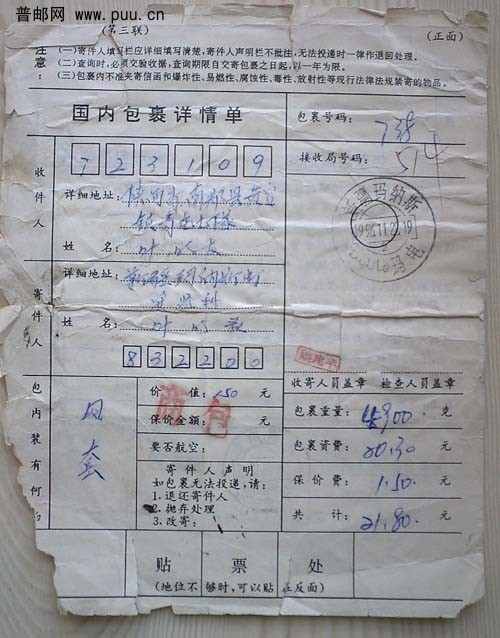 普邮网 www.puu.cn
(第三联)
(正面)
注意：
(一)寄件人填写栏应详细填写清楚，寄件人声明栏不批注，无法投递时一律作退回处理。
(二)查询时，必须交验收据，查询期限自交寄包裹之日起，以一年为限。
(三)包裹内不准夹寄信函和爆炸性、易燃性、腐蚀性、毒性、放射性等现行法律法规禁寄的物品。
国内包裹详情单
包裹号码：
接收局号码：514
收件人
723109
详细地址：
姓名：
新疆玛纳斯
寄件人
详细地址：
姓名：
832200
包内装有何物
价值：150元
保价金额：元
商包
要否航空：
寄件人声明
如包裹无法投递，请：
1.退还寄件人
2.抛弃处理
3.改寄：
收寄人员盖章 检查人员盖章
包裹重量：4900克
包裹资费：20.30元
保价费：1.50元
共计：21.80元
贴票处
(地位不够时，可以贴在反面)